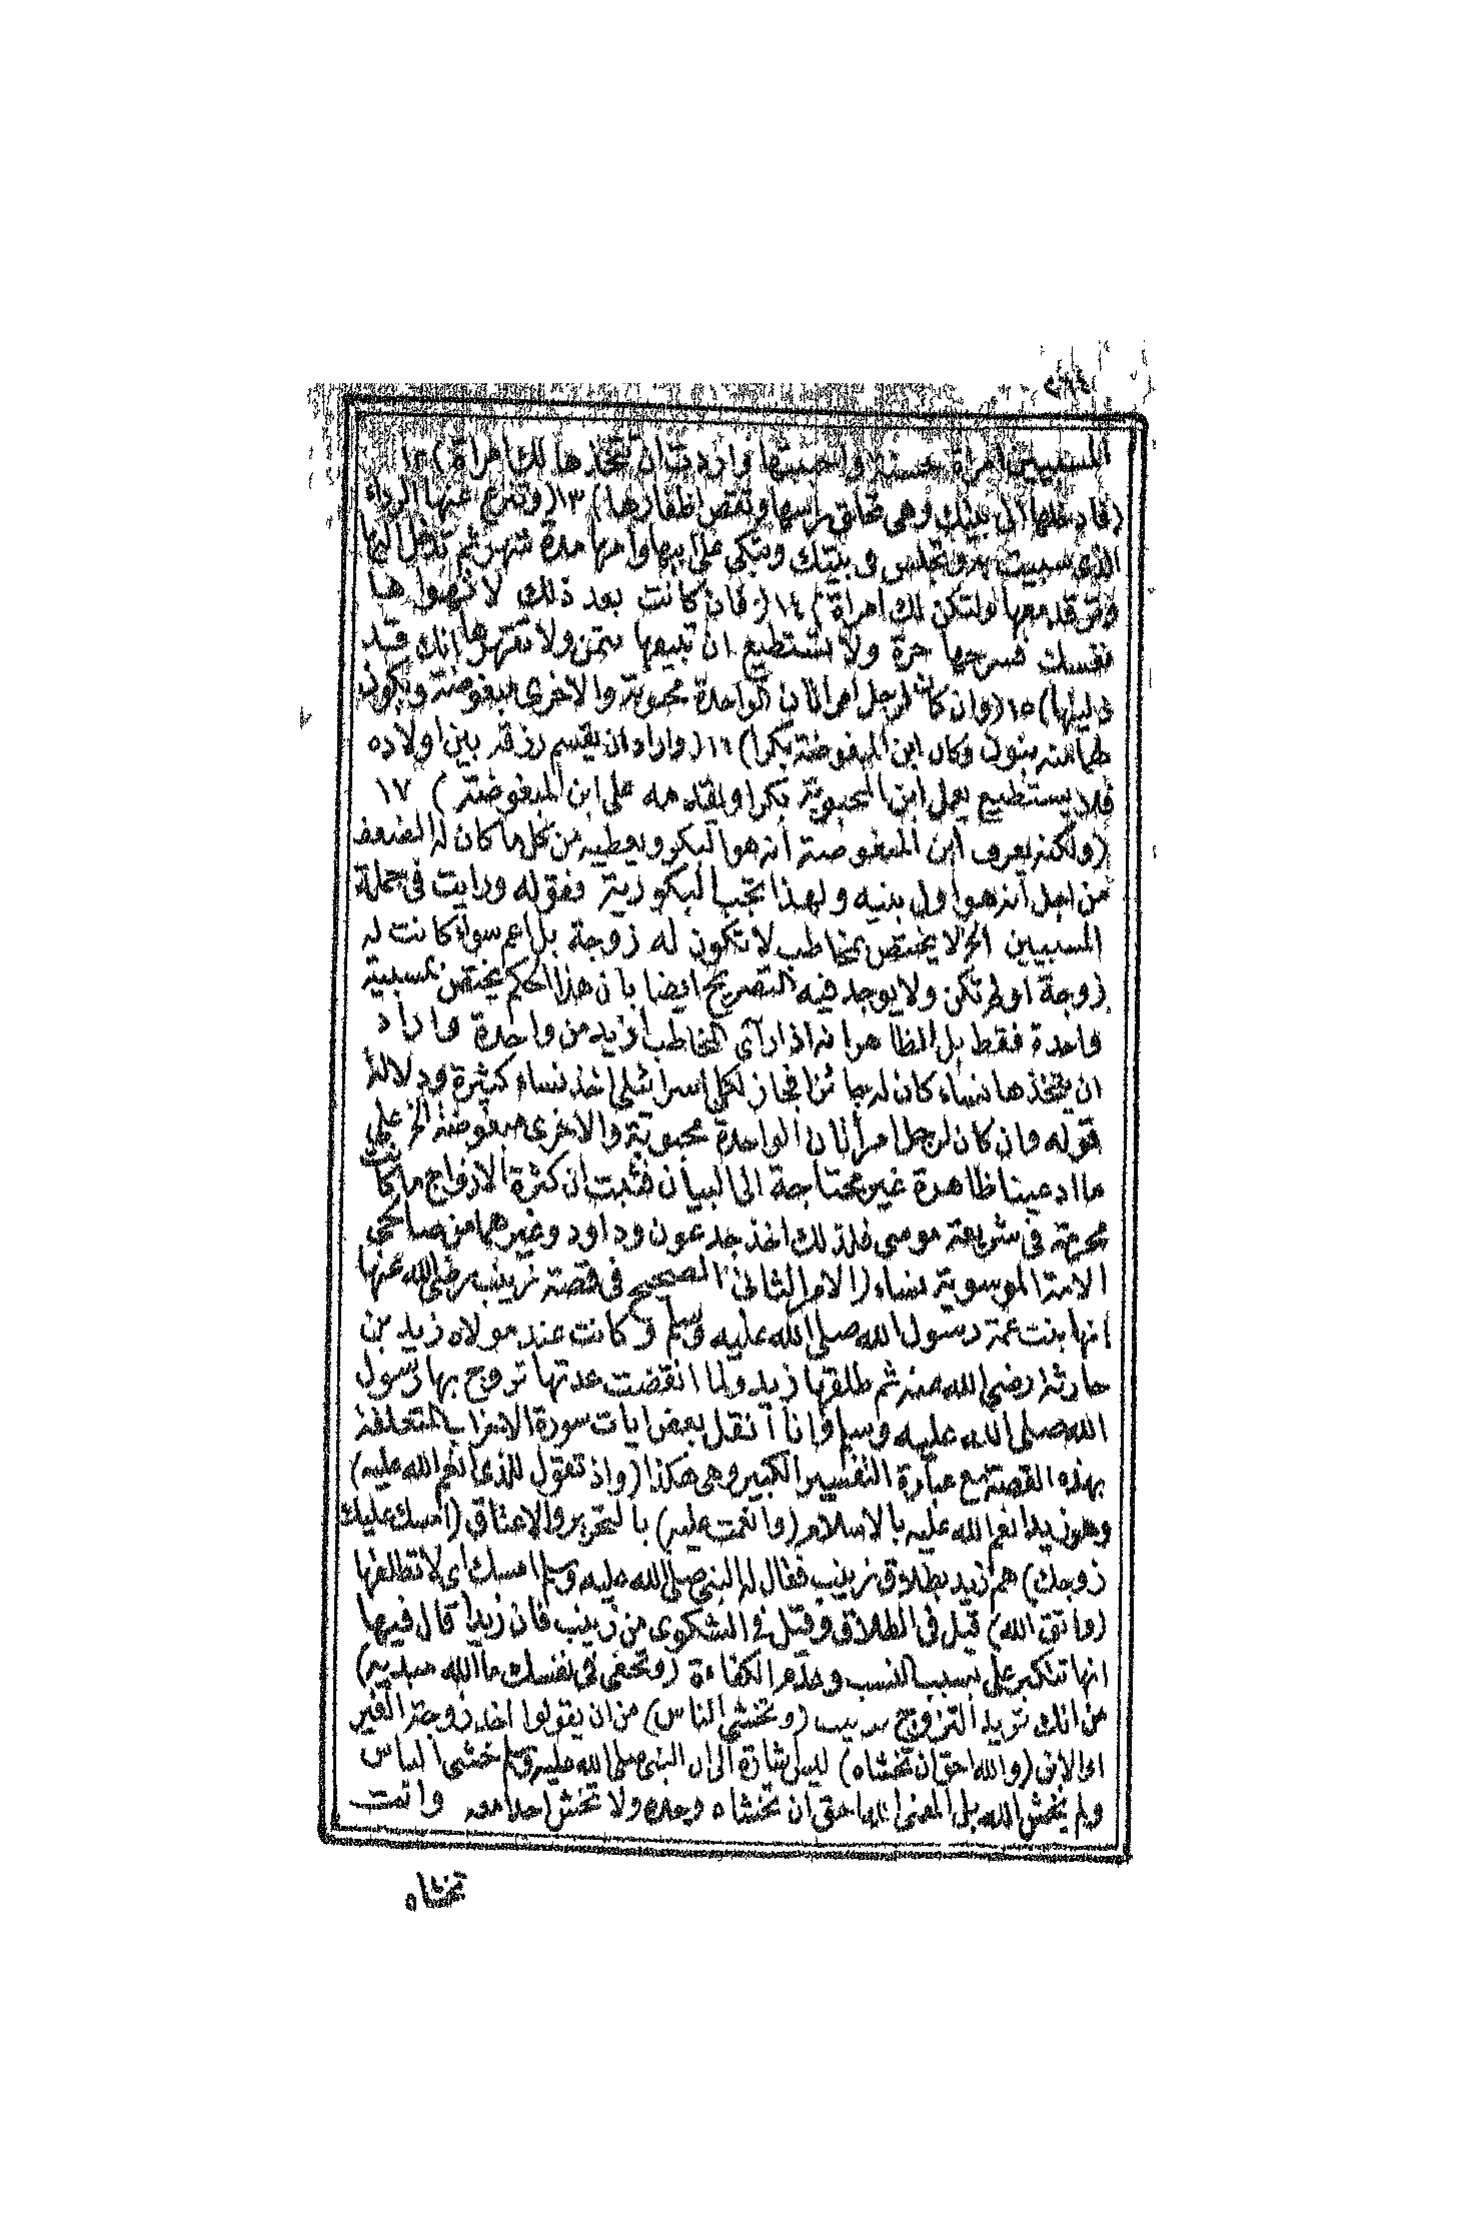 المسبيين امراة حسنة واحببتها واردت ان تتخذها لك امراة) ١٣
(فادخلها الى بيتك وهى تحلق راسها وتقص اظفارها) ١٣ (وتنزع عنها الرداء
الذى سبيت به وتجلس فى بيتك وتبكى على ابيها وامها مدة شهر ثم تدخل اليها
وترقد معها ولتكن لك امراة) ١٤ (فان كانت بعد ذلك لا تهواها
نفسك فسرحها حرة ولا تستطيع ان تبيعها بثمن ولا تقهرها انك قد
ذليتها) ١٥ (وان كان لرجل امراتان الواحدة محبوبة والاخرى مبغوضة ويكون
لهما منه بنون وكان ابن المبغوضة بكرا) ١٦ (واراد ان يقسم رزقه بين اولاده
فلا يستطيع يعمل ابن المحبوبة بكرا ويقدمه على ابن المبغوضة) ١٧
(ولكنه يعرف ابن المبغوضة انه هو البكر ويعطيه من كل ما كان له الضعف
من اجل انه هو اول بنيه ولهذا تجب البكورية فقوله ورايت فى جملة
المسبيين الخ لا يختص بمخاطب لا تكون له زوجة بل اعم سواء كانت له
زوجة او لم تكن ولا يوجد فيه التصريح ايضا بان هذا الحكم يختص بمسبية
واحدة فقط بل الظاهر انه اذا رآى المخاطب ازيد من واحدة واراد
ان يتخذها نساء كان له جائزا فجاز لكل اسرائيلى اخذ نساء كثيرة ودلالة
قوله وان كان لرجل امراتان الواحدة محبوبة والاخرى مبغوضة الخ على
ما ادعينا ظاهرة غير محتاجة الى البيان فثبت ان كثرة الازواج ما كانت
محرمة فى شريعة موسى فلذلك اخذ جدعون وداود وغيرهما من صالحى
الامة الموسوية نساء (الامر الثانى) الصحيح فى قصة زينب رضى الله عنها
انها بنت عمة رسول الله صلى الله عليه وسلم وكانت عند مولاه زيد بن
حارثة رضى الله عنه ثم طلقها زيد ولما انقضت عدتها تزوج بها رسول
الله صلى الله عليه وسلم وانا آنقل بعض ايات سورة الاحزاب المتعلقة
بهذه القصة مع عبارة التفسير الكبير وهى هكذا (واذ تقول للذى انعم الله عليه)
وهو زيد انعم الله عليه بالاسلام (وانعمت عليه) بالتحرير والاعتاق (امسك عليك
زوجك) هم زيد بطلاق زينب فقال له النبى صلى الله عليه وسلم امسك اى لا تطلقها
(واتق الله) قيل فى الطلاق وقيل فى الشكوى من زينب فان زيدا قال فيها
انها تتكبر على بسبب النسب وعدم الكفاءة (وتخفى فى نفسك ما الله مبديه)
من انك تريد التزوج بزينب (وتخشى الناس) من ان يقولوا اخذ زوجة الغير
او الابن (والله احق ان تخشاه) ليس اشارة الى ان النبى صلى الله عليه وسلم خشى الناس
ولم يخش الله بل المعنى الله احق ان تخشاه وحده ولا تخش احدا معه وانت
تخشاه